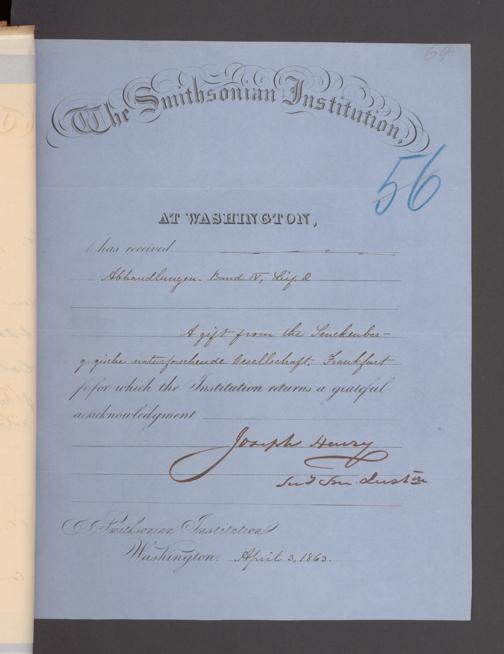 64
The Smithsonian Institution,
56
AT WASHINGTON,
has received
Abhandlungen. Band IV, Lief. 2
A gift from the Senckenber-
gische naturforschende Gesellschaft. Frankfurt
for which the Institution returns a grateful
acknowledgment
Joseph Henry
Smithsonian Institution
Washington. April 3, 1863.